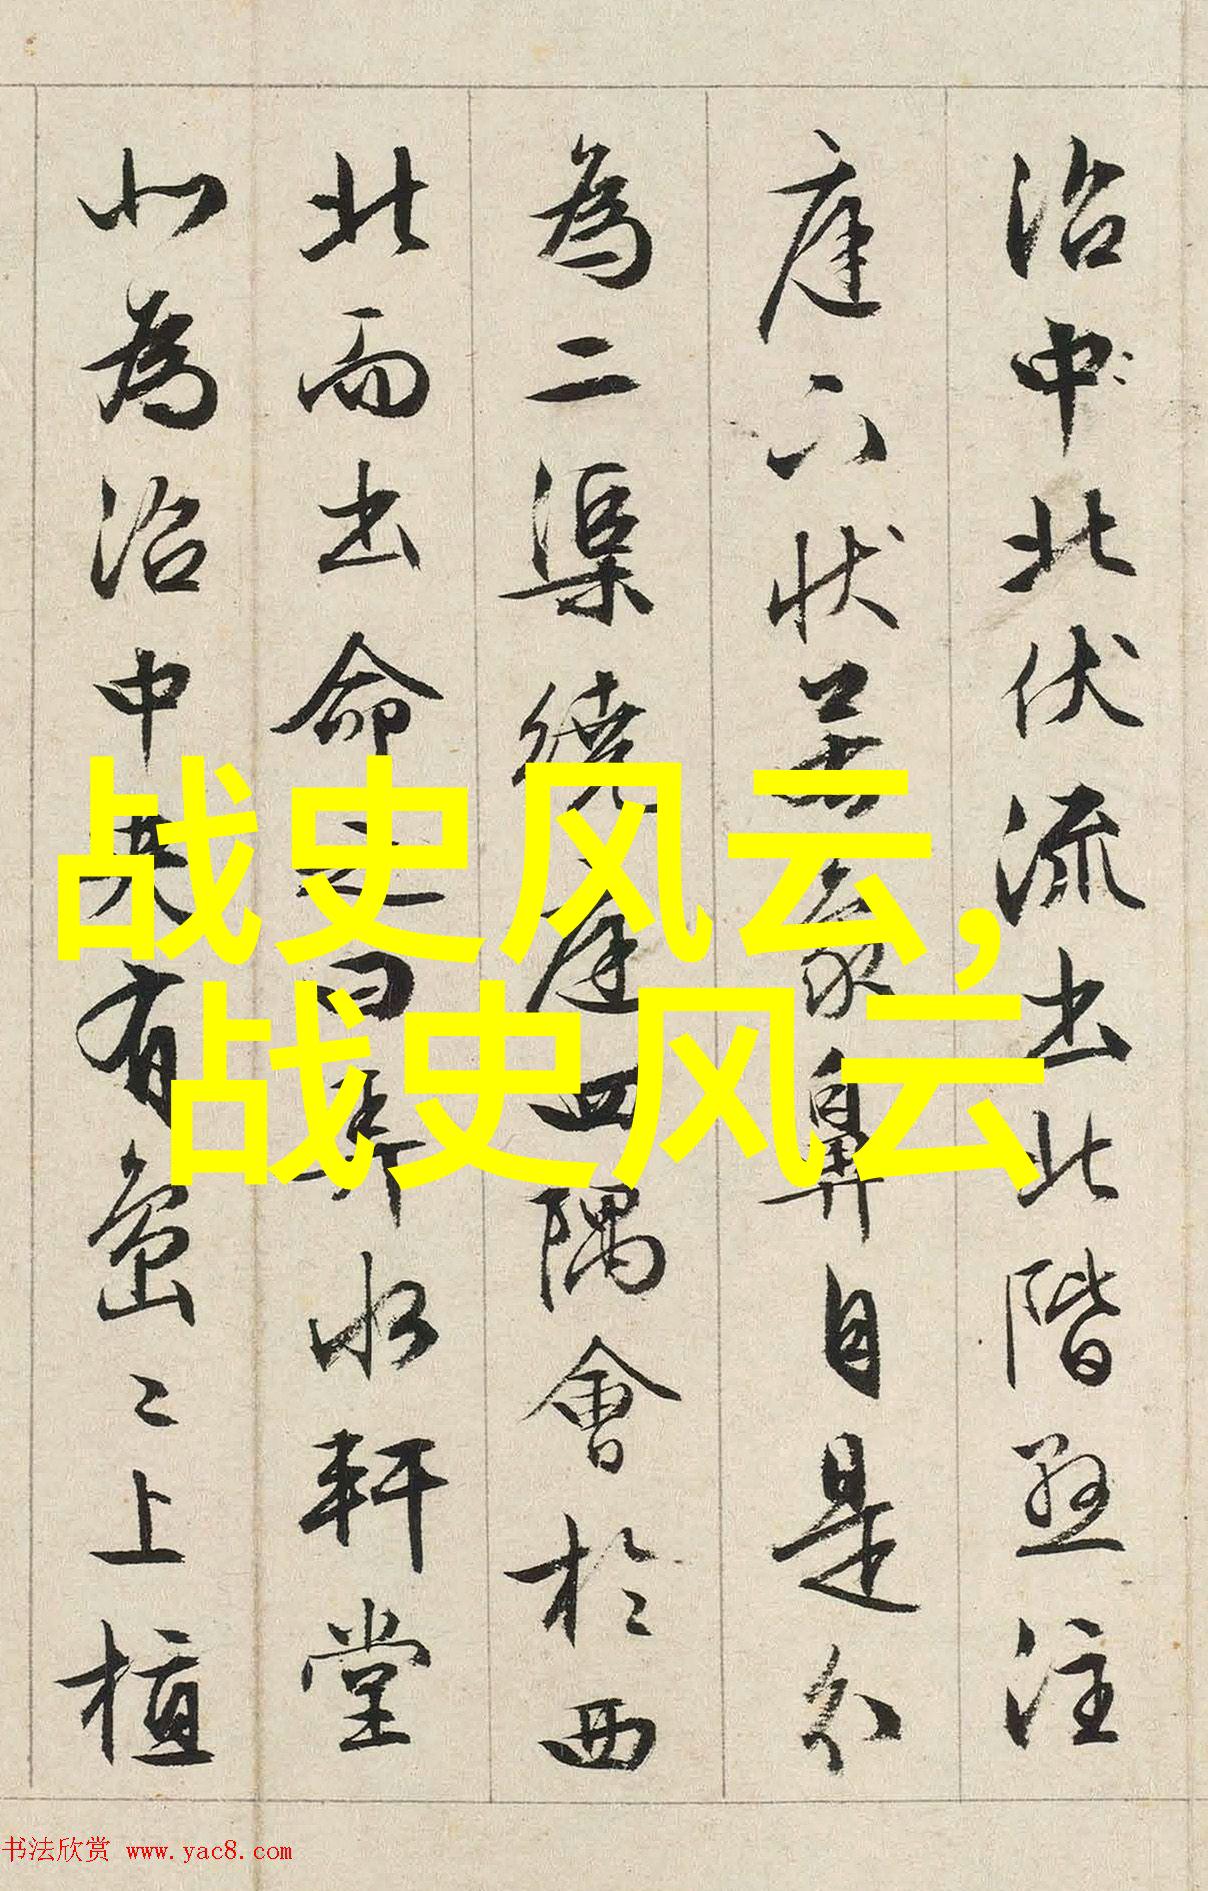 沼中北伏流出北階懸注
庭下状若象鼻自是分
為二渠繞庭四隅會於西
北而出命之曰弄水軒堂
北為沼中央有島〻上植
战史风云,
战史风云
书法欣赏 www.yac8.com